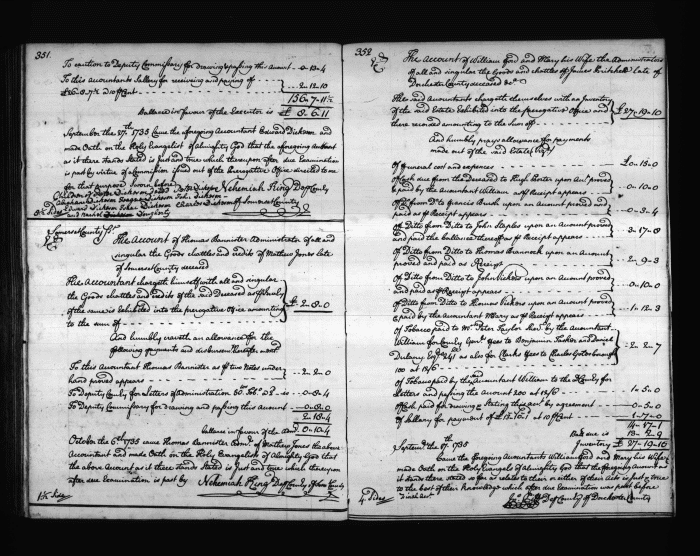 351.
To caution to Deputy Commissary for drawing & passing this Account - 0-13-4
To this Accountants Sallery for receiving and paying of
£26:8:7½ Do ℔ Cent - 2-12-10
156-7-11½
Ballance in favour of the Executor is £ 8.6.11
September the 27th 1735 Came the aforegoing Accountant Edward Dickeson and
made Oath on the Holy Evangelist of Almighty God that the aforegoing Account
as it there stands Stated is just and true which thereupon after due Examination
is past by virtue of a Commission issued out of the Prerogative Office directed to me
for that purpose Sworn before Nehemiah King Dep County
of Somerset County
3½ Sides
Somerset County Ss
The Account of Thomas Bannister Administrator of all and
singular the Goods chattles and credits of Mathew Jones late
of Somerset County deceased
The Accountant chargeth himself with all and singular
the Goods chattles and credits of the said Deceased as ℔ Inventory
of the same is Exhibited into the prerogative Office amounting
to the sum of £ 2-8-0
And humbly craveth an allowance for the
following payments and disbursements
To this Accountant Thomas Bannister as ℔ two Notes under
hand proved appears 2-2-0
To Deputy County for Letters of Administration 0-8-4
To Deputy Commissary for drawing and passing this Account 0-8-0
2-18-4
Ballance in favour of the Accountt. 0-10-4
October the 6th 1735 came Thomas Bannister Admr. of Mathew Jones the above
Accountant and made Oath on the Holy Evangelist of Almighty God that
the above Account as it there stands Stated is Just and true which thereupon
after due Examination is past by Nehemiah King Dep County of Som County
1½ Sides
352.
The Account of William Ford and Mary his Wife the Administrators
of all and singular the Goods and chattles of James Pritchett Late of
Dorchester County deceased
The said Accountants chargeth themselves with an Inventory
of the said Estate Exhibited into the prerogative Office and
there recorded amounting to the sum of £ 27-19-10
And humbly prays allowance for payments
made out of the said Estate
Of Funeral cost and expences £0-15-0
Of Cash due from the Deceased to Hugh Porter upon Acct. proved
& paid by the Accountant William as ℔ Receipt appears 0-10-0
Of Do from Do to Francis Bush upon an Account proved and
paid as ℔ Receipt appears 0-3-4
Of Ditto from Ditto to John Staples upon an Account proved
and paid the ballance thereof as ℔ Receipt appears 3-17-8
Of Ditto from Ditto to Thomas Brannock upon an Account
proved and paid as ℔ Receipt 2-9-3
Of Ditto from Ditto to John Vickers upon an Account proved
and paid as ℔ Receipt appears 0-10-0
Of Ditto from Ditto to Thomas Vickers upon an Account proved
& paid by the Accountant Mary as ℔ Receipt appears 1-12-3
Of Tobacco paid to Mr. Peter Taylor Recr. by the accountant
William for County Govr. Fees to Benjamin Tasker and Daniel
Dulany Esqr. 241 as also for Clarks Fees to Charles Goldsborough
100 at 12/6 2-2-7
Of Tobacco paid by the Accountant William to the Dy County for
Letters and passing the Account 200 at 12/6 1-5-0
Of Cash paid for drawing & stating this acct. by agreement 0-5-0
Of Sallary for payment of £13:10:1 at 10 ℔ Cent 1-7-0
14-17-1
Ballance is 13-2-9
Inventory £ 27-19-10
September the 17th 1735
Came the aforegoing Accountants William Ford and Mary his Wife &
made Oath on the Holy Evangelist of Almighty God that the foregoing Account as
it stands there stated so far as relates to their or either of their Acts is just & true
to the best of their Knowledge which after due Examination was past before
Dep County of Dorchester County
4 Sides